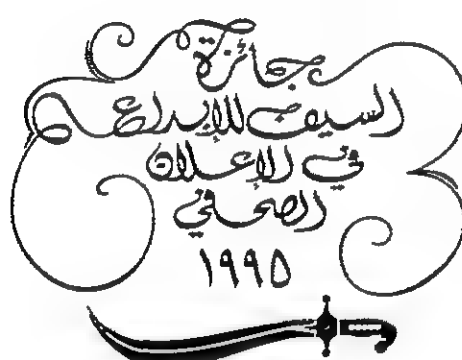 جائزة
السيف للإبداع
في الإعلان
الصحفي
١٩٩٥